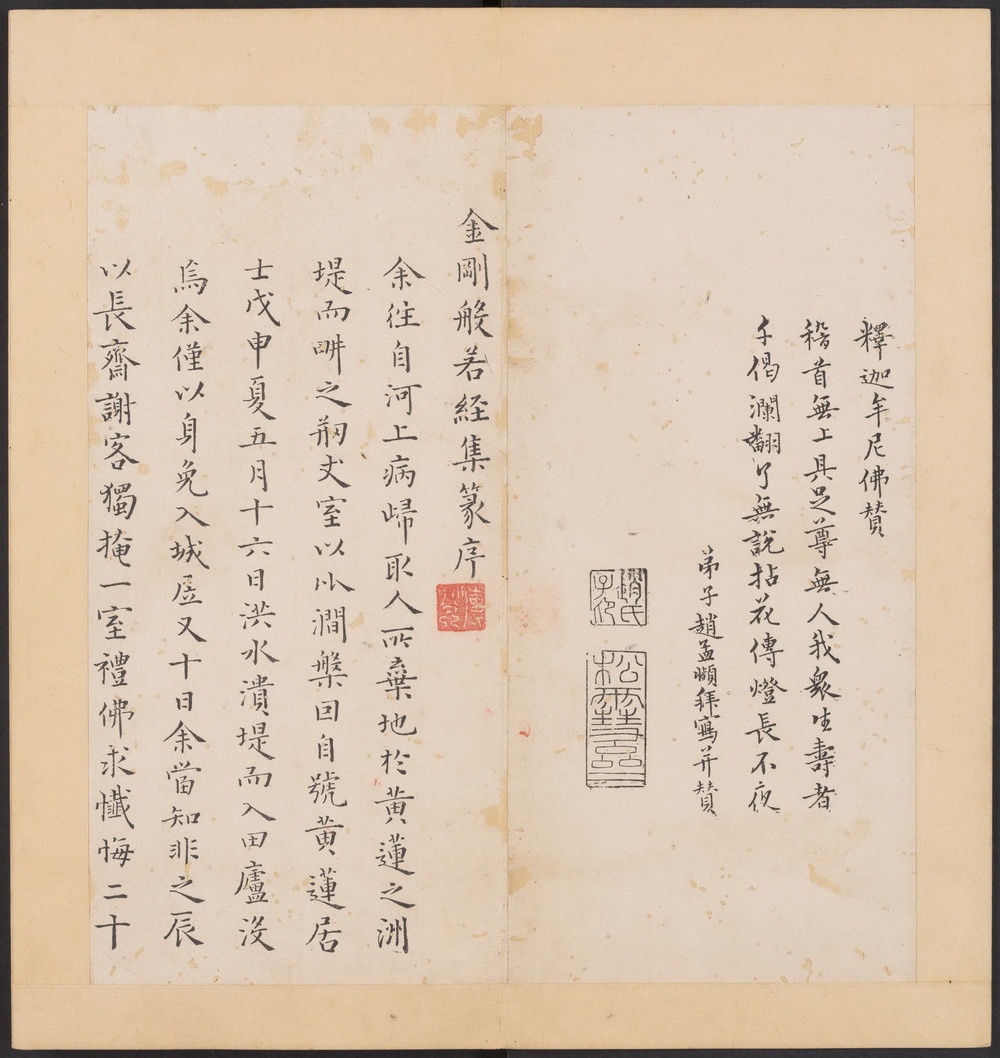 釋迦牟尼佛赞
稽首無上具足尊無人我眾生壽者
千偈瀾翻了無説拈花傳燈長不夜
弟子趙孟頫拜寫并赞
趙氏子卬
松雪齋
金剛般若經集篆序
余往自河上病歸取人所棄地於黃蓮之洲
堤而畊之剏丈室以小澗槃回自號黃蓮居
士戊申夏五月十六日洪水潰堤而入田廬沒
焉余僅以身免入城居又十日余當知非之辰
以長齋謝客獨掩一室禮佛求懺悔二十